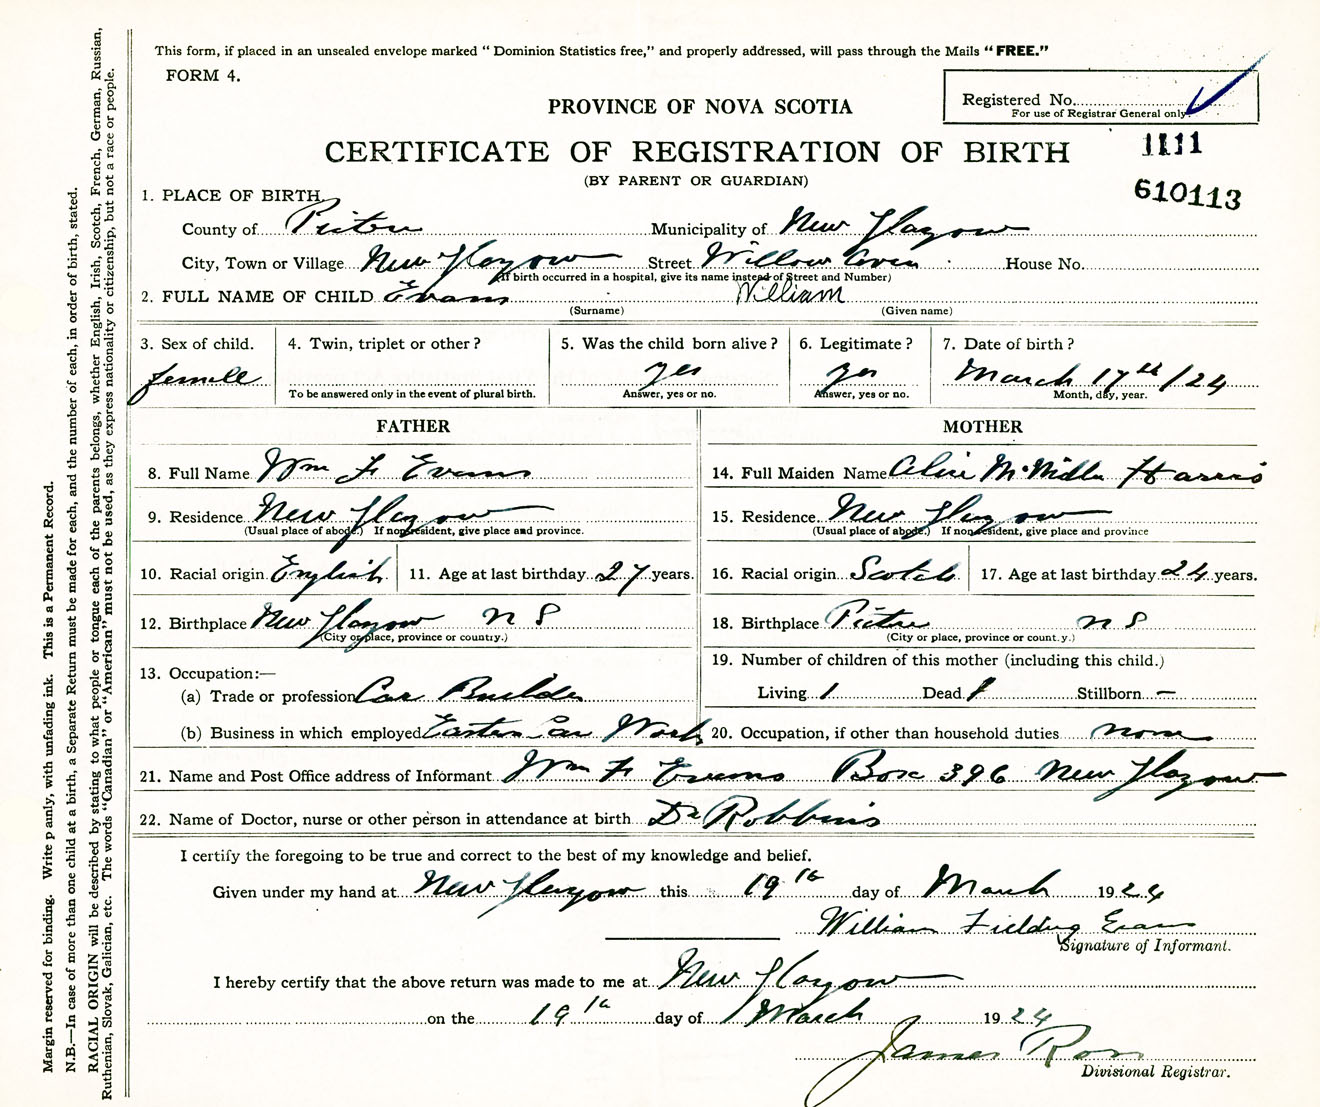 This form, if placed in an unsealed envelope marked " Dominion Statistics free," and properly addressed, will pass through the Mails "FREE."
FORM 4.
Registered No.
For use of Registrar General only
PROVINCE OF NOVA SCOTIA
1111
CERTIFICATE OF REGISTRATION OF BIRTH
(BY PARENT OR GUARDIAN)
610113
1. PLACE OF BIRTH
County of Pictou Municipality of New Glasgow
City, Town or Village New Glasgow Street Willow Aven House No.
(If birth occurred in a hospital, give its name instead of Street and Number)
2. FULL NAME OF CHILD Evans William
(Surname) (Given name)
3. Sex of child. 4. Twin, triplet or other? 5. Was the child born alive? 6. Legitimate? 7. Date of birth?
femele yes yes March 17th/24
To be answered only in the event of plural birth. Answer, yes or no. Answer, yes or no. Month, day, year.
FATHER MOTHER
8. Full Name Wm F Evans 14. Full Maiden Name Harris
9. Residence New Glasgow 15. Residence New Glasgow
(Usual place of abode.) If nonresident, give place and province. (Usual place of abode.) If nonresident, give place and province
10. Racial origin English 11. Age at last birthday 27 years. 16. Racial origin Scotch 17. Age at last birthday 24 years.
12. Birthplace New Glasgow N S 18. Birthplace Pictou N S
(City or place, province or country.) (City or place, province or count.y.)
13. Occupation:— 19. Number of children of this mother (including this child.)
(a) Trade or profession Car Builder Living 1 Dead 1 Stillborn —
(b) Business in which employed Eastern Car Works 20. Occupation, if other than household duties none
21. Name and Post Office address of Informant Wm F Evans Box 396 New Glasgow
22. Name of Doctor, nurse or other person in attendance at birth Dr Robbins
I certify the foregoing to be true and correct to the best of my knowledge and belief.
Given under my hand at New Glasgow this 19th day of March 1924
William Fielding Evans
Signature of Informant.
I hereby certify that the above return was made to me at New Glasgow
on the 19th day of March 1924
James Ross
Divisional Registrar.
Margin reserved for binding. Write p anly, with unfading ink. This is a Permanent Record.
N.B.—In case of more than one child at a birth, a Separate Return must be made for each, and the number of each, in order of birth, stated.
RACIAL ORIGIN will be described by stating to what people or tongue each of the parents belongs, whether English, Irish, Scotch, French, German, Russian,
Ruthenian, Slovak, Galician, etc. The words "Canadian" or "American" must not be used, as they express nationality or citizenship, but not a race or people.